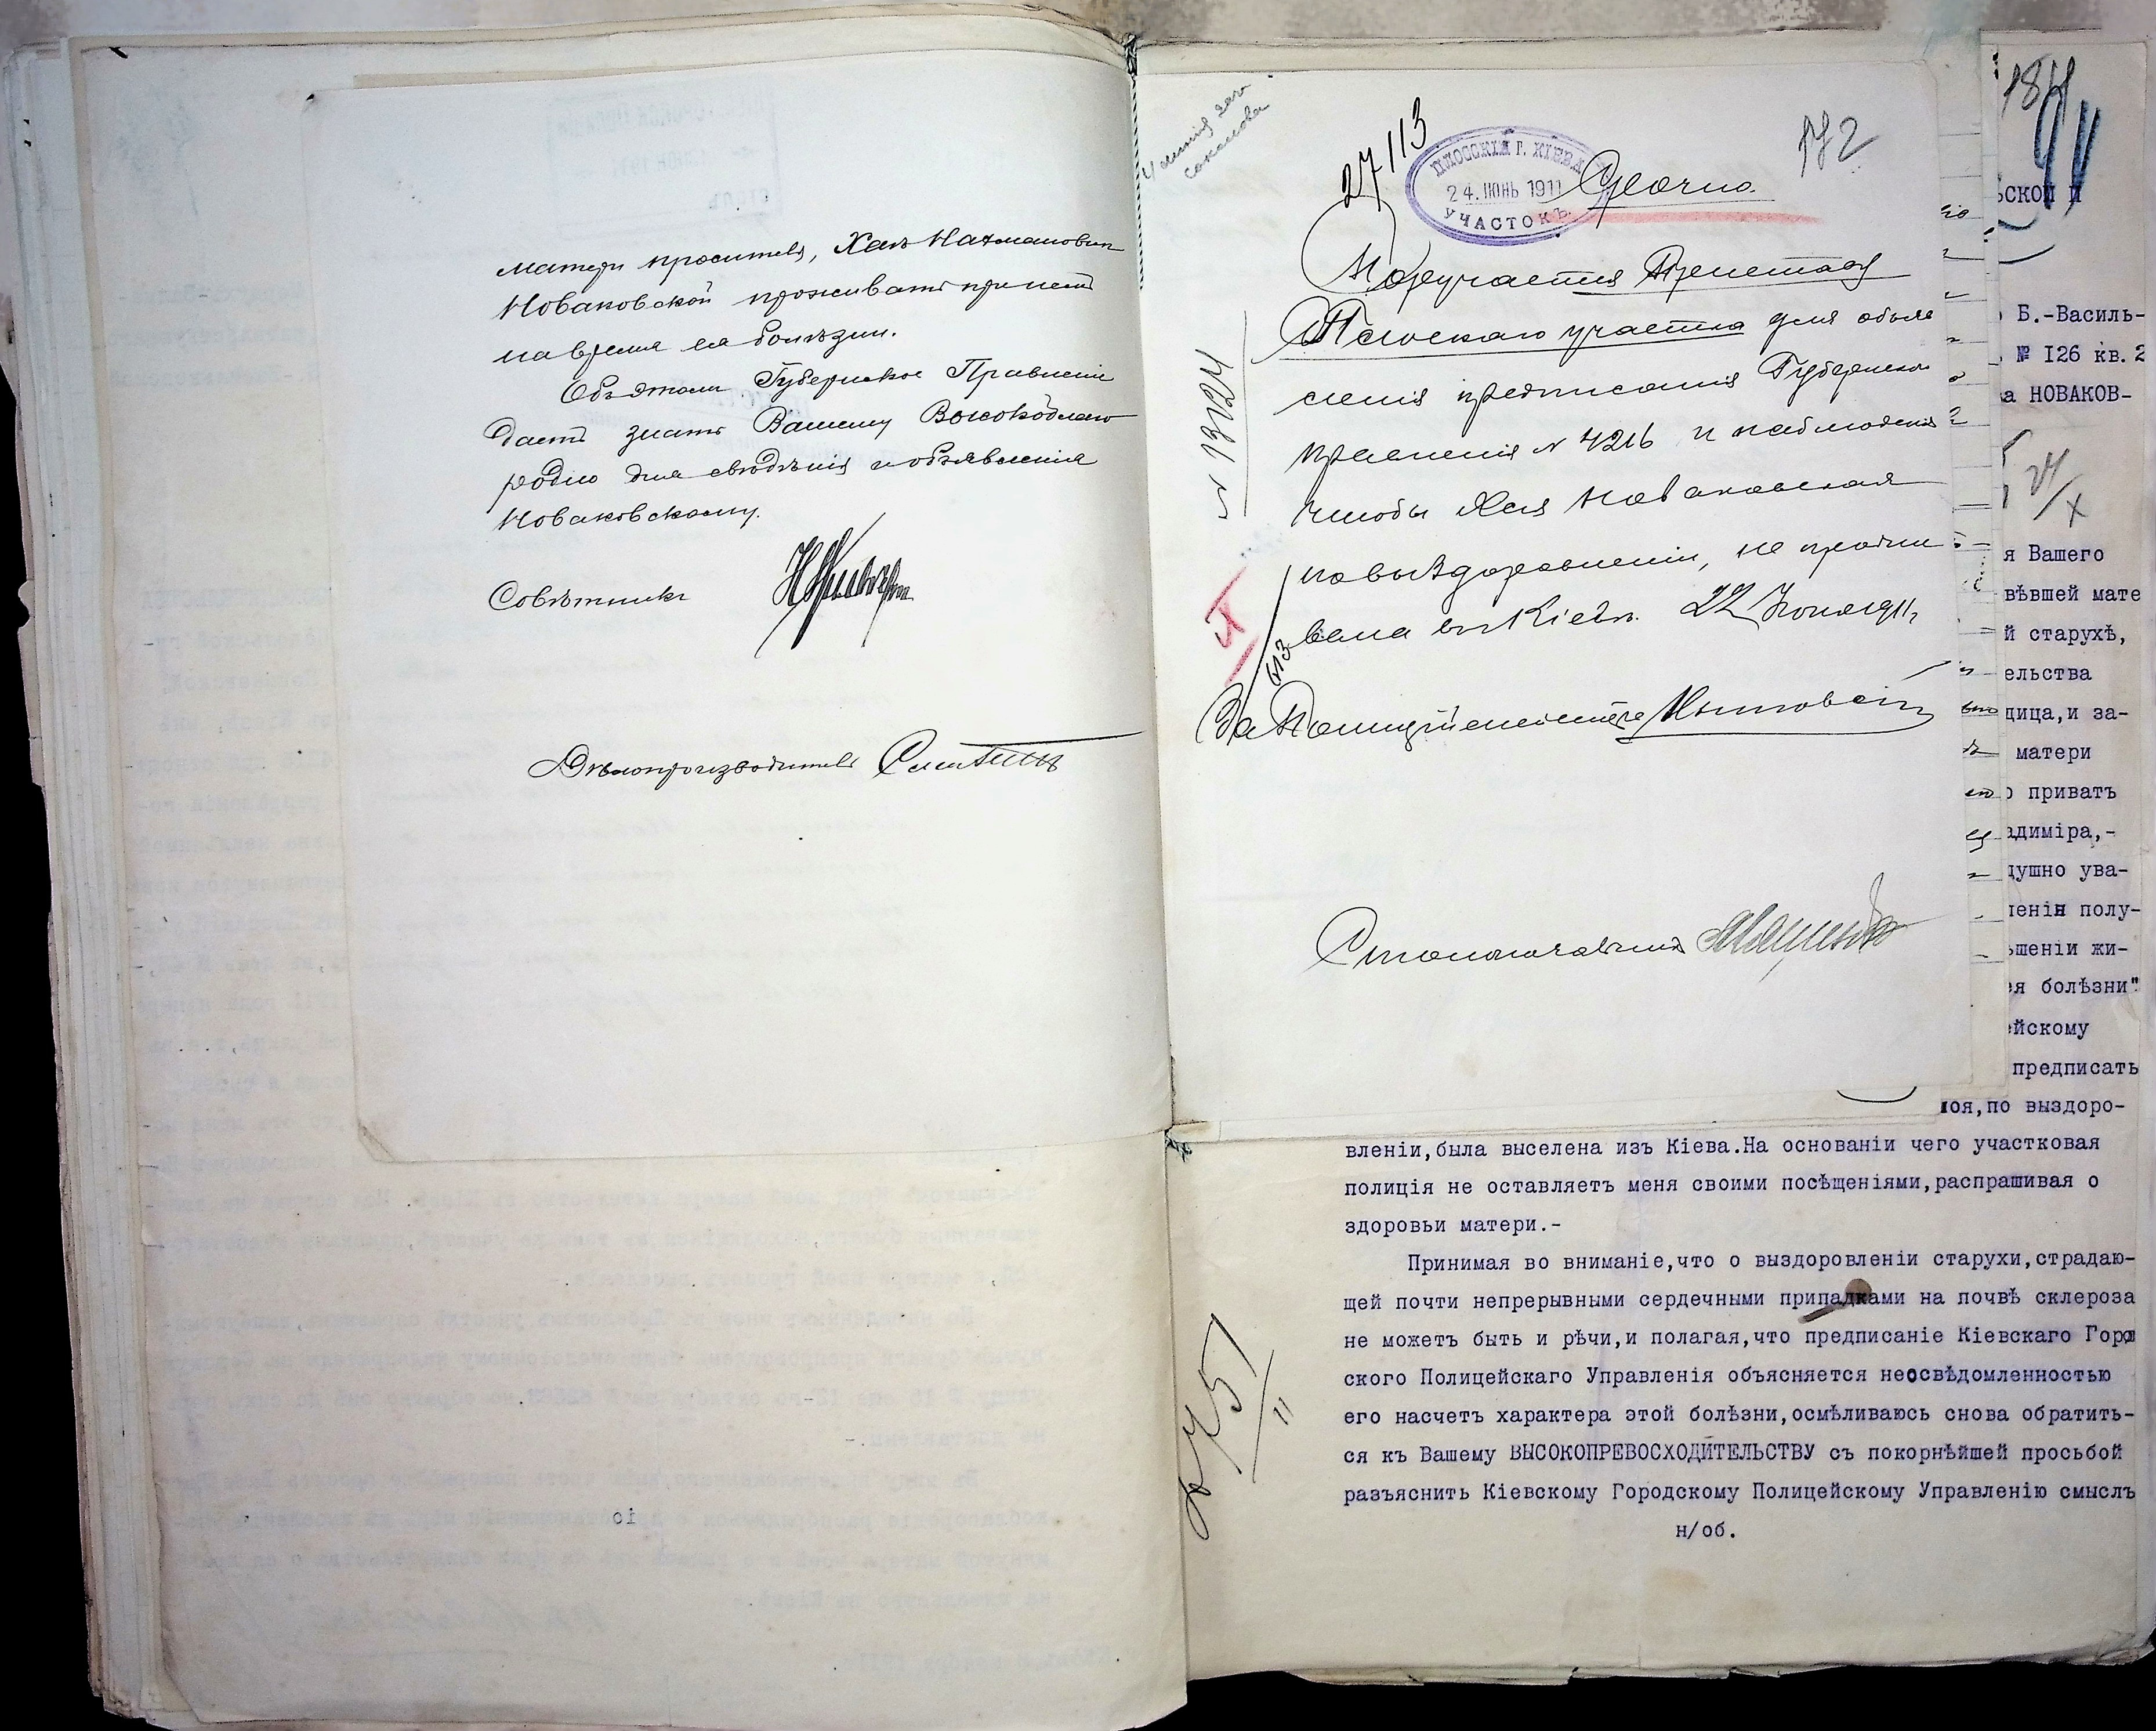 матери просителя, Хаѣ Нахмановнѣ
Новаковской проживать при немъ
на время ея болѣзни.
Объ этомъ Губернское Правленіе
даетъ знать Вашему Высокоблаго
родію для свѣдѣнія и объявленія
Новаковскому.
Совѣтникъ
Дѣлопроизводитель
27113
ПЛОССКІЙ Г. КІЕВА
24.ІЮНЬ 1911
УЧАСТОКЪ
Срочно.
172
Поручается Приставу
Плоскаго участка для объяв
ленія предписанія Губернскаго
правленія № 4216 и наблюденія
чтобы Хая Новаковская
по выздоровленіи, не прожи
вала въ Кіевѣ. 22 Іюня 1911 г.
№ 13224
613
За Полиціймейстера
Столоначальникъ
184
ьской и
Б.-Василь-
№ 126 кв. 2
а НОВАКОВ-
24/X
я Вашего
вѣвшей мате
й старухѣ,
ельства
дица,и за-
матери
о приватъ
адиміра,-
душно ува-
леніи полу-
ьшеніи жи-
ея болѣзни"
ейскому
предписать
моя,по выздоро-
вленіи,была выселена изъ Кіева.На основаніи чего участковая
полиція не оставляетъ меня своими посѣщеніями,распрашивая о
здоровьи матери.-
Принимая во вниманіе,что о выздоровленіи старухи,страдаю-
щей почти непрерывными сердечными припадками на почвѣ склероза
не можетъ быть и рѣчи,и полагая,что предписаніе Кіевскаго Город
ского Полицейскаго Управленія объясняется неосвѣдомленностью
его насчетъ характера этой болѣзни,осмѣливаюсь снова обратить-
ся къ Вашему ВЫСОКОПРЕВОСХОДИТЕЛЬСТВУ съ покорнѣйшей просьбой
разъяснить Кіевскому Городскому Полицейскому Управленію смыслъ
н/об.